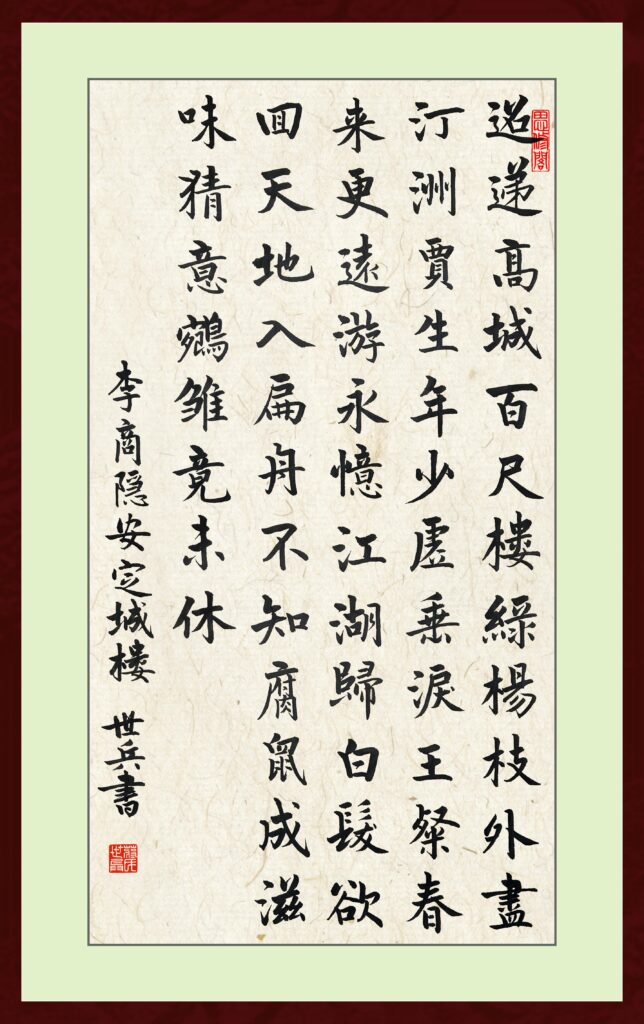 迢递高城百尺楼綠楊枝外盡
汀洲賈生年少虛垂淚王粲春
来更遠游永憶江湖歸白髮欲
回天地入扁舟不知腐鼠成滋
味猜意鵷雛竟未休
李商隐安定城楼 世兵書
思修閣